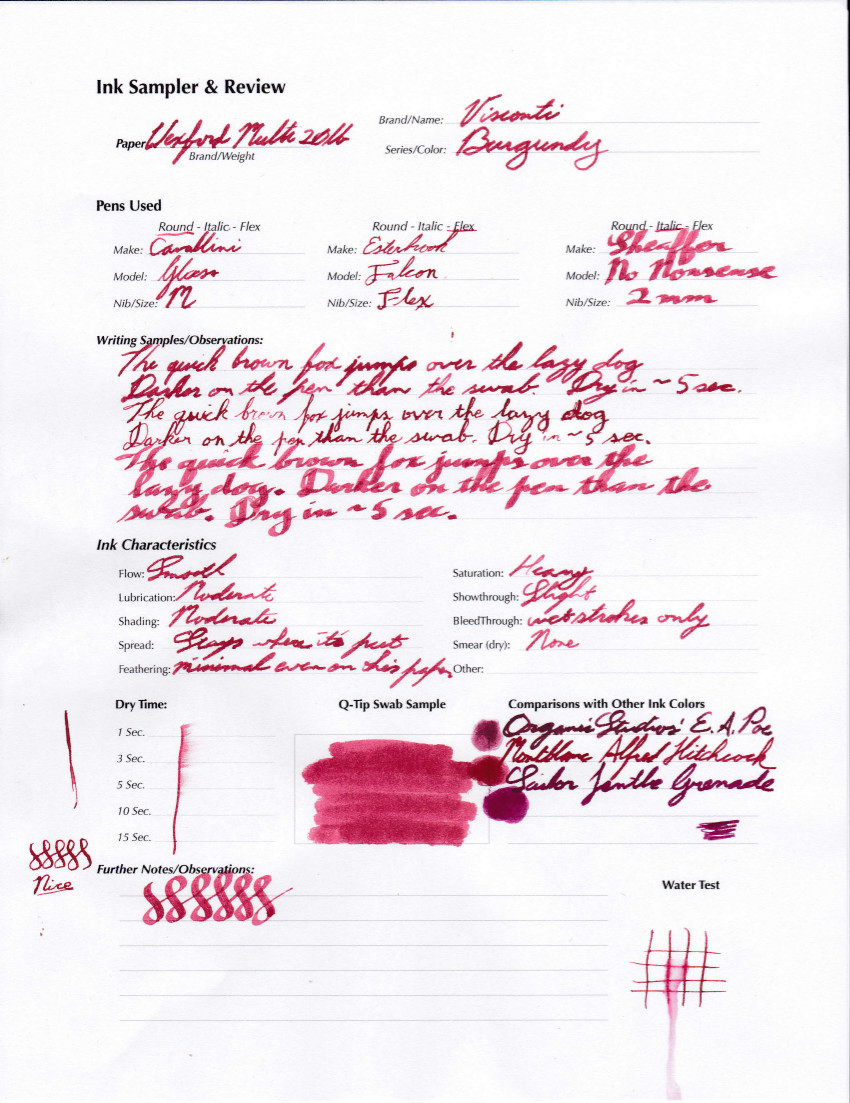 Ink Sampler & Review
Brand/Name: Visconti
Paper Wexford Multi 20lb
Brand/Weight
Series/Color: Burgundy
Pens Used
Round - Italic - Flex Round - Italic - Flex Round - Italic - Flex
Make: Cavallini Make: Esterbrook Make: Sheaffer
Model: Glass Model: Falcon Model: No Nonsense
Nib/Size: M Nib/Size: Flex Nib/Size: 2mm
Writing Samples/Observations:
The quick brown fox jumps over the lazy dog
Darker on the pen than the swab. Dry in ~ 5 sec.
The quick brown fox jumps over the lazy dog
Darker on the pen than the swab. Dry in ~ 5 sec.
The quick brown fox jumps over the
lazy dog. Darker on the pen than the
swab. Dry in ~ 5 sec.
Ink Characteristics
Flow: Smooth Saturation: Heavy
Lubrication: Moderate Showthrough: Slight
Shading: Moderate BleedThrough: wet strokes only
Spread: Stays where it's put Smear (dry): None
Feathering: minimal even on this paper Other:
Dry Time: Q-Tip Swab Sample Comparisons with Other Ink Colors
1 Sec. Organic Studios' E. A. Poe
3 Sec. Montblanc Alfred Hitchcock
5 Sec. Sailor Jentle Grenade
10 Sec.
15 Sec.
Nice
Further Notes/Observations:
Water Test